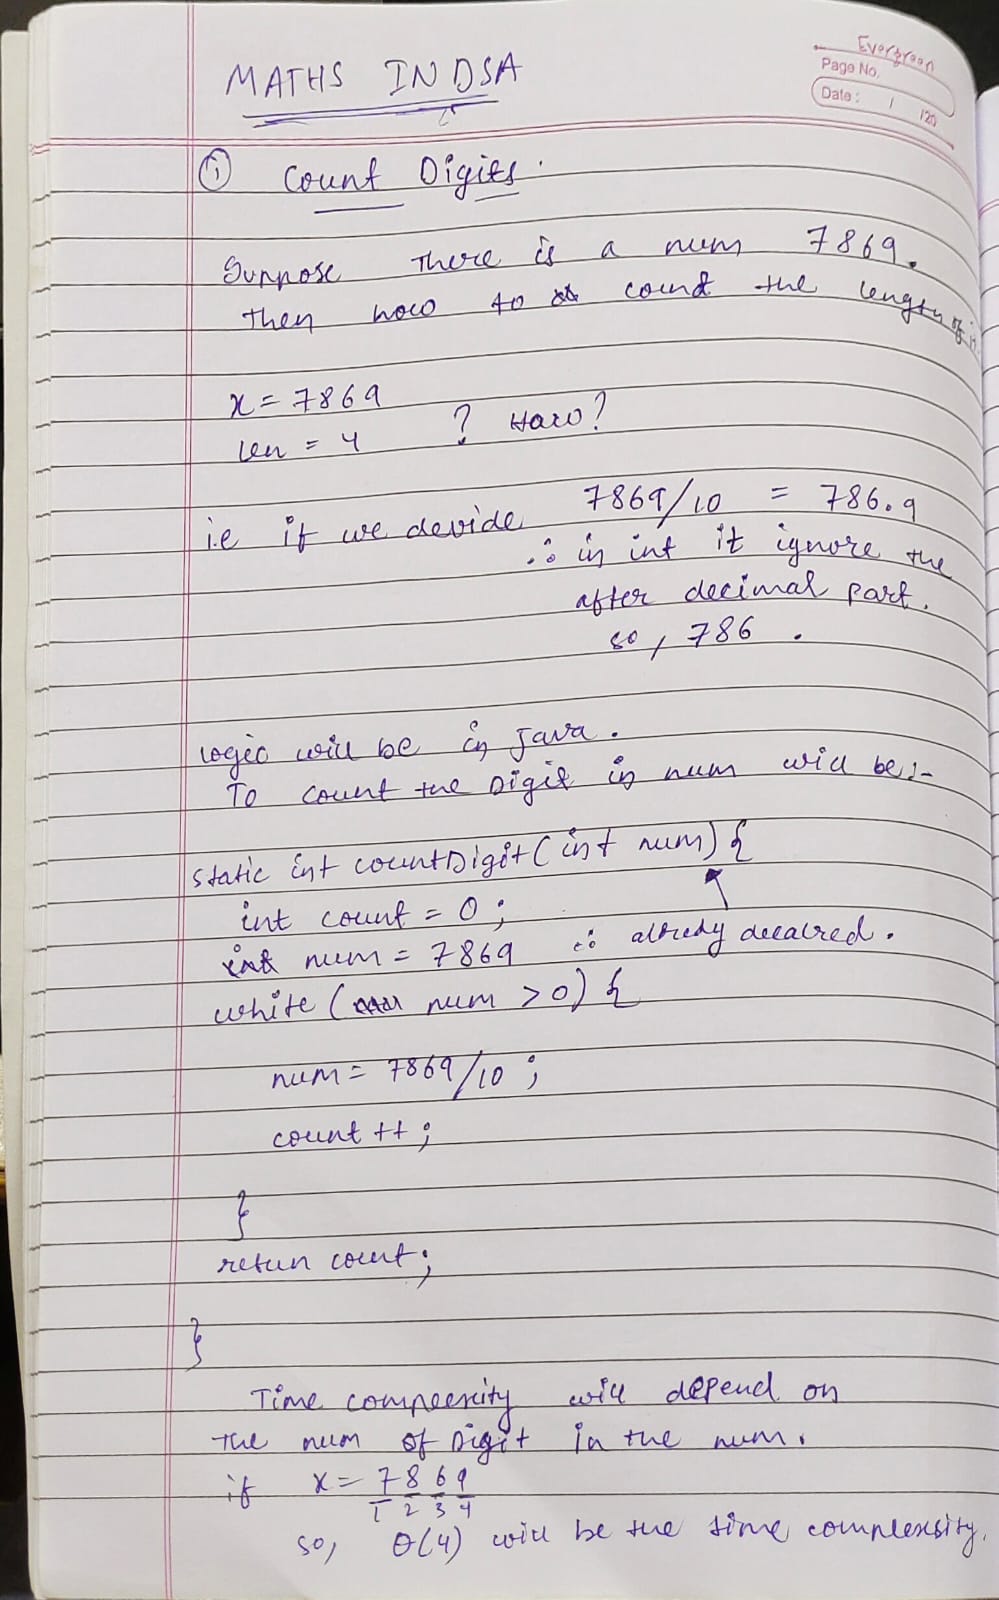 Evergreen
Page No.
Date: / /20
MATHS IN DSA
① Count Digits.
Suppose There is a num 7869.
Then how to count the length of it.
x = 7869
len = 4 ? How?
i.e if we devide 7869/10 = 786.9
∴ in int it ignore the
after decimal part.
so, 786.
Logic will be in Java.
To count the Digit in num will be:-
static int countDigit(int num){
int count = 0;
int num = 7869 ∴ alredy decalred.
while ( num > 0) {
num = 7869/10;
count ++;
}
retun count;
}
Time compleexity will depend on
The num of Digit in the num.
if x = 7 8 6 9
1 2 3 4
so, O(4) will be the time complexsity.